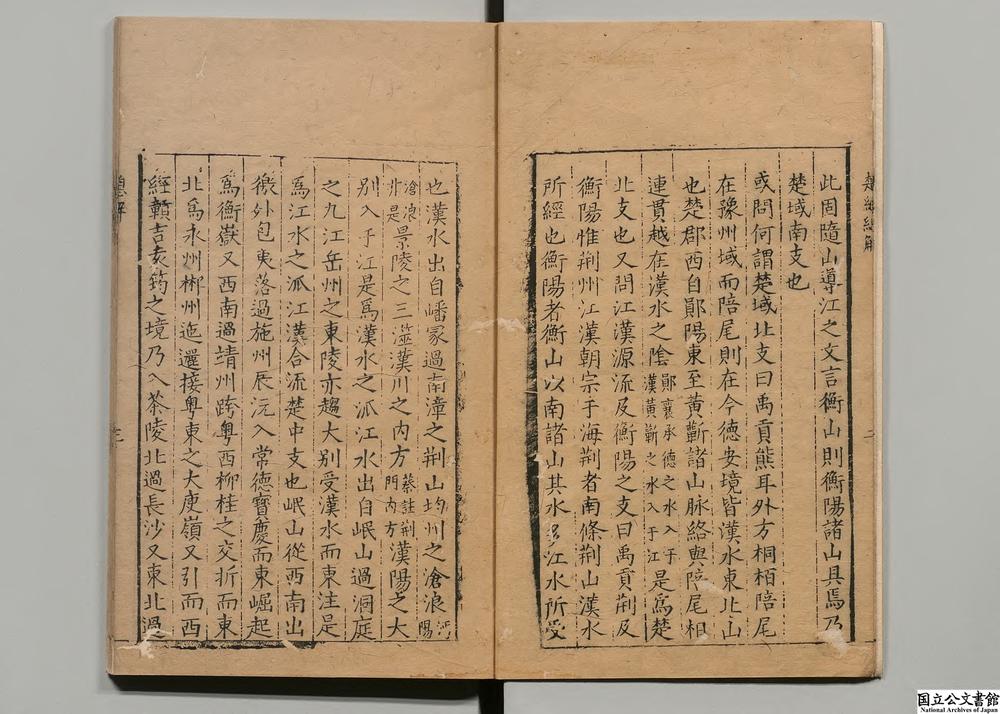 此周隨山導江之文言衡山則衡陽諸山具焉乃
楚域南支也
或問何謂楚域北支曰禹貢熊耳外方桐栢陪尾
在豫州域而陪尾則在今德安境皆漢水東北山
也楚郡西自鄖陽東至黃蘄諸山脉絡與陪尾相
連貫越在漢水之陰鄖襄承德之水入于漢黃蘄之水入于江是爲楚
北支也又問江漢源流及衡陽之支曰禹貢荆及
衡陽惟荆州江漢朝宗于海荆者南條荆山漢水
所經也衡陽者衡山以南諸山其水多江水所受
也漢水出自嶓冢過南漳之荆山均州之滄浪沔陽
滄浪非是景陵之三澨漢川之內方蔡註荆門內方漢陽之大
別入于江是爲漢水之派江水出自岷山過洞庭
之九江岳州之東陵亦趨大別受漢水而東注是
爲江水之派江漢合流楚中支也岷山從西南出
徼外包夷落過施州辰沅入常德寶慶而東崛起
爲衡嶽又西南過靖州跨粤西柳桂之交折而東
北爲永州郴州迤邐接粤東之大庾嶺又引而西
經贛吉袁筠之境乃入茶陵北過長沙又東北過
国立公文書館
National Archives of Japan